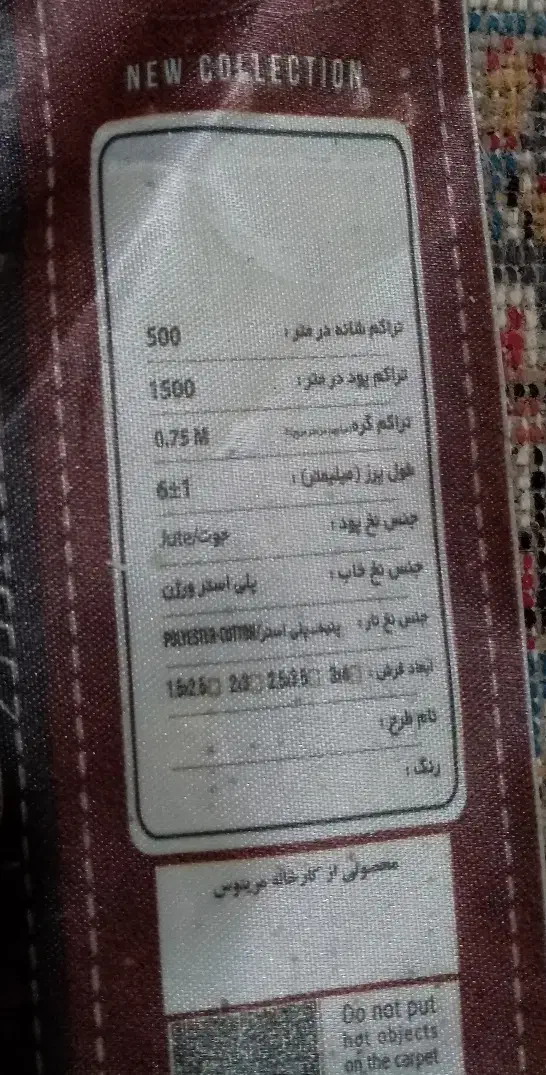 NEW COLLECTION
تراکم شانه در متر : 500
تراکم پود در متر : 1500
تراکم گره 0.75 M
طول پرز (میلیمتر) : 6±1
جنس نخ پود : جوت/Jute
جنس نخ خاب : پلی استر ورژن
جنس نخ تار : پنبه_پلی استر/POLYESTER-COTTON
ابعاد فرش : 3x4□ 2.5x3.5□ 2x3□ 1.5x2.5□
نام طرح :
رنگ :
محصولی از کارخانه مرینوس
Do not put
hot objects
on the carpet